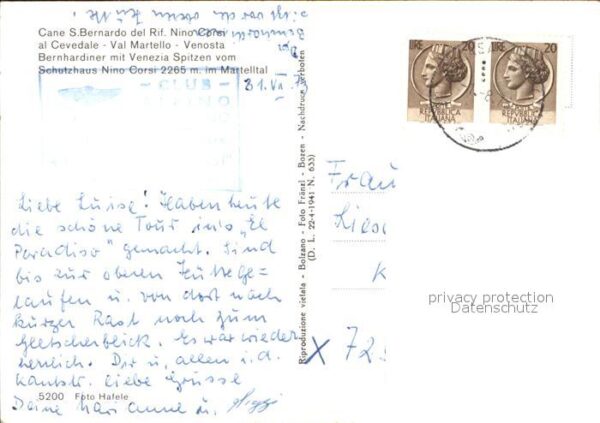 Cane S.Bernardo del Rif. Nino Corsi
al Cevedale - Val Martello - Venosta
Bernhardiner mit Venezia Spitzen vom
Schutzhaus Nino Corsi 2265 m. im Martelltal
- CLUB -
31. VII.
Liebe Luise! Haben heute
die schöne Tour in's "El
Paradiso" gemacht. Sind
bis zur oberen Hütte ge=
laufen u. von dort nach
kurzer Rast noch zum
Gletscherblick. Es war wieder
herrlich. Dir u. allen i. d.
Kantstr. liebe Grüsse
Deine Marianne u.
5200 Foto Hafele
Riproduzione vietata - Bolzano - Foto Fränzl - Bozen - Nachdruck verboten
(D. L. 22-4-1941 N. 633)
LIRE 20
LIRE 20
REPUBBLICA ITALIANA
REPUBBLICA ITALIANA
Frau
Liese
K
x 725
privacy protection
Datenschutz